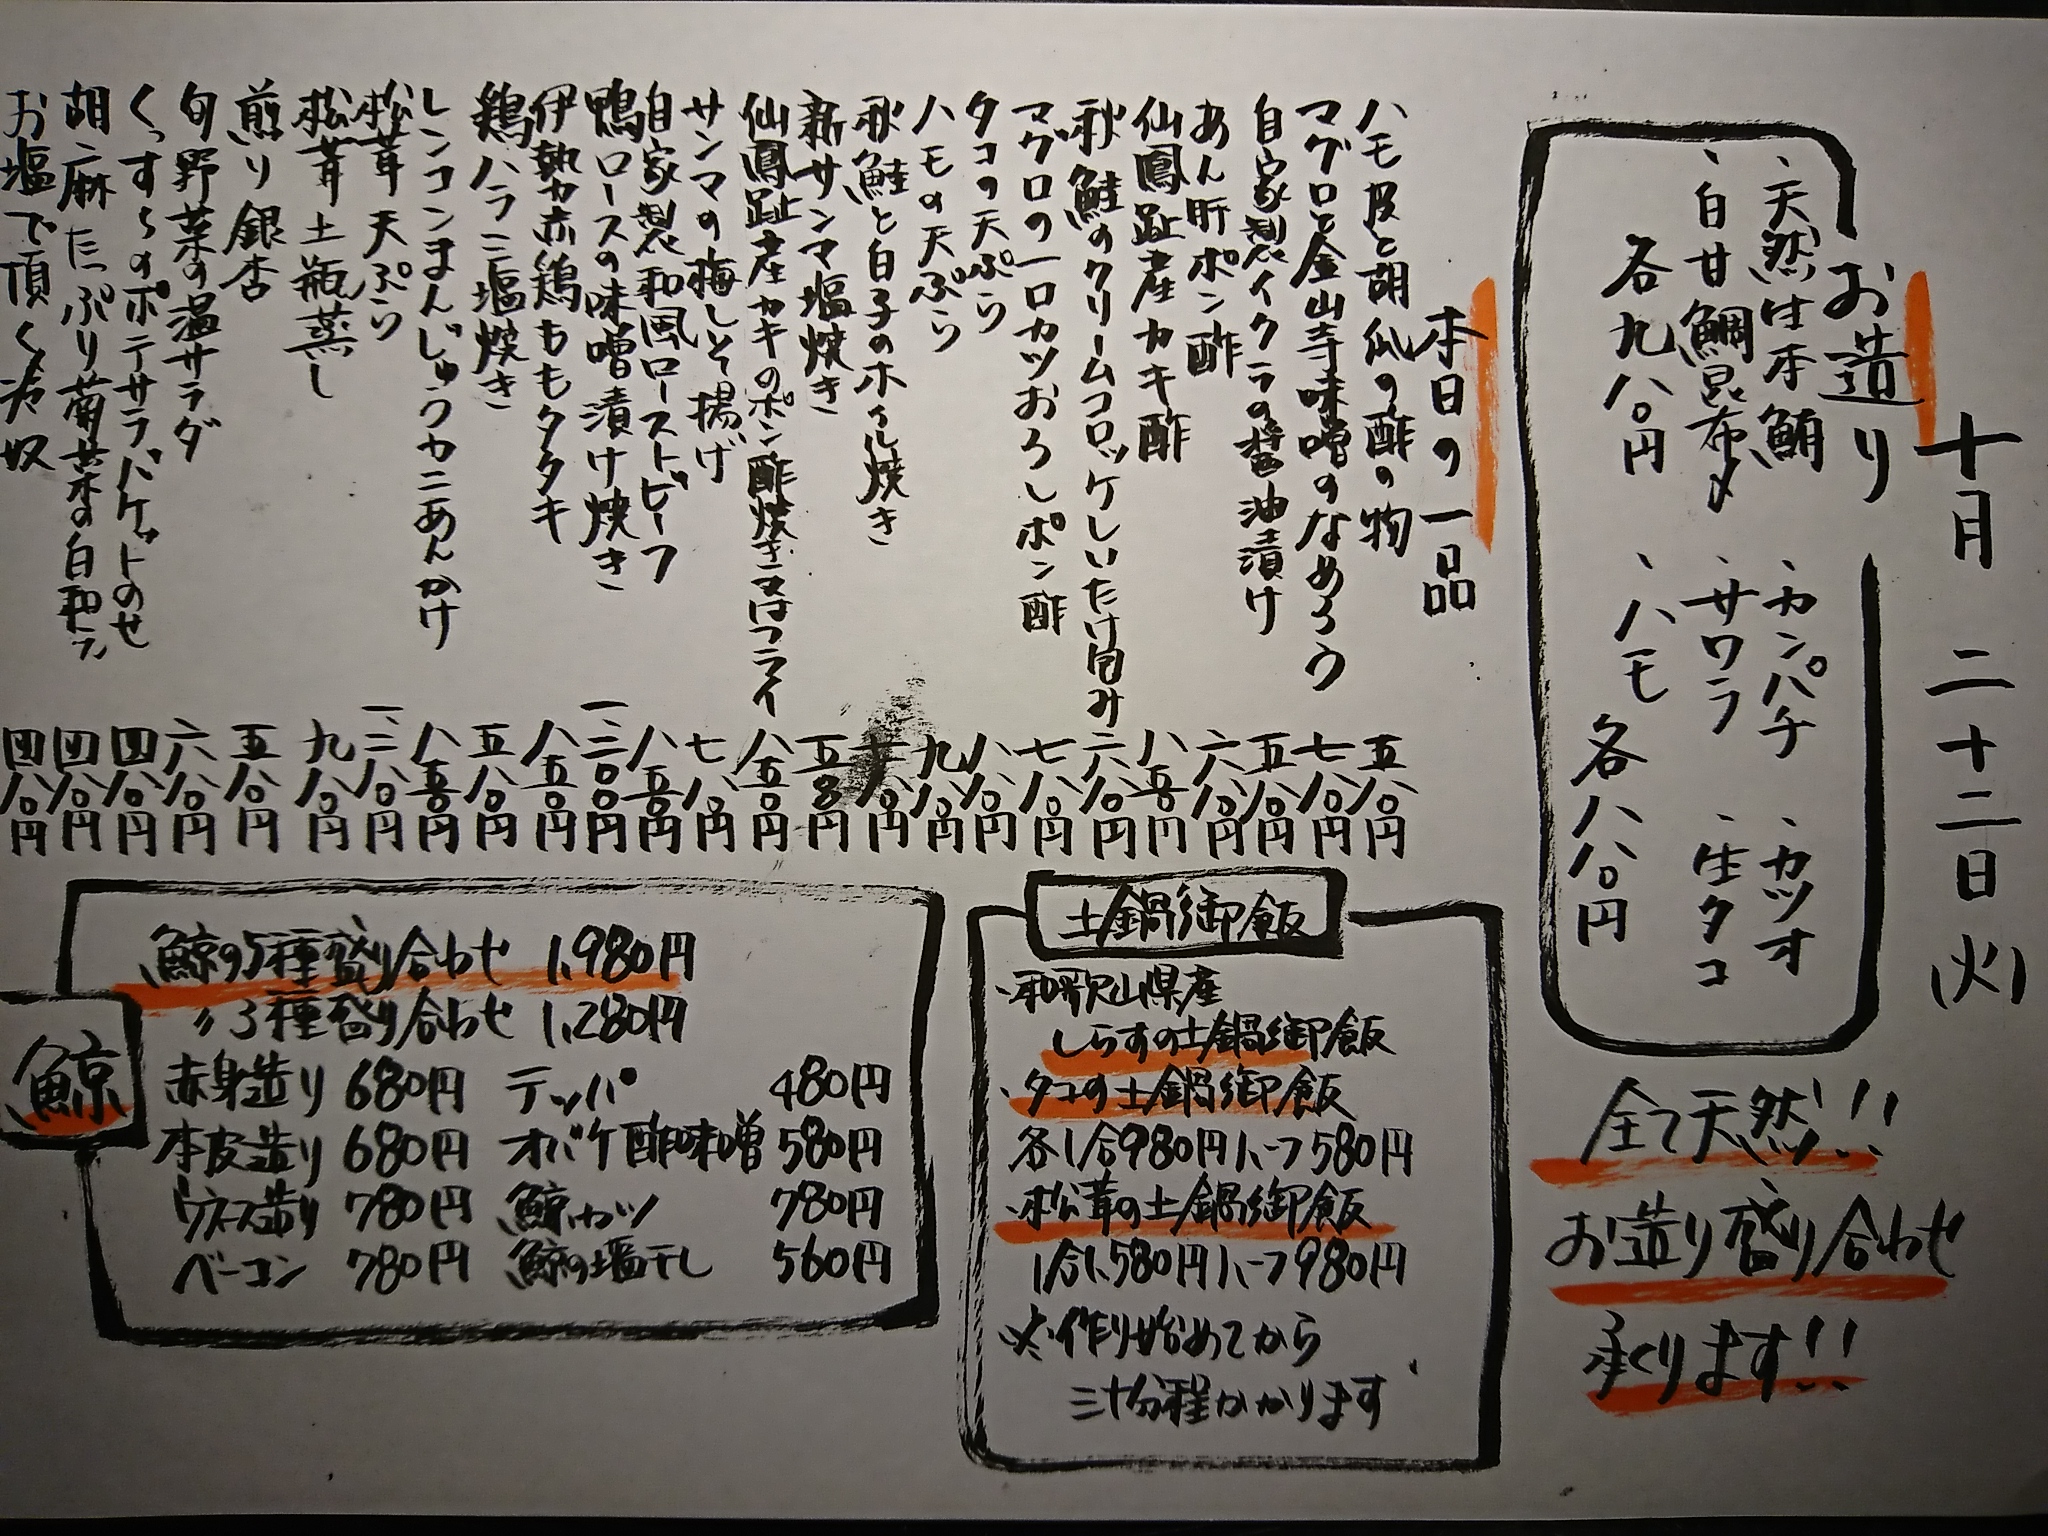 十月二十二日(火)
お造り
、天然生本鮪
、白甘鯛昆布〆
各九八〇円
、カンパチ
、サワラ
、ハモ
、カツオ
、生タコ
各八八〇円
全て天然!!
お造り盛り合わせ
承ります!!
本日の一品
ハモ皮と胡瓜の酢の物 五八〇円
マグロと金山寺味噌のなめろう 七八〇円
自家製イクラの醤油漬け 五八〇円
あん肝ポン酢 六八〇円
仙鳳趾産カキ酢 八五〇円
秋鮭のクリームコロッケしいたけ包み 六八〇円
マグロの一口カツおろしポン酢 七八〇円
タコの天ぷら 八八〇円
ハモの天ぷら 九八〇円
秋鮭と白子のホイル焼き 八〇円
新サンマ塩焼き 円
仙鳳趾産カキのポン酢焼き又はフライ 八五〇円
サンマの梅しそ揚げ 七八〇円
自家製和風ローストビーフ 八五〇円
鴨ロースの味噌漬け焼き 一三〇〇円
伊勢赤鶏ももタタキ 八五〇円
鶏ハラミ塩焼き 五八〇円
レンコンまんじゅうカニあんかけ 八五〇円
松茸天ぷら 一二八〇円
松茸土瓶蒸し 九八〇円
煎り銀杏 五八〇円
旬野菜の温サラダ 六八〇円
くっすらのポテサラバケットのせ 四八〇円
胡麻たっぷり菊菜の白和え 四八〇円
お塩で頂く冷奴 四八〇円
土鍋御飯
・和歌山県産
しらすの土鍋御飯
・タコの土鍋御飯
各1合980円ハーフ580円
・松茸の土鍋御飯
1合1,580円ハーフ980円
※作り始めてから
三十分程かかります
鯨
鯨の5種盛り合わせ 1,980円
〃3種盛り合わせ 1,280円
赤身造り 680円 テッパ 480円
本皮造り 680円 オバケ酢味噌 580円
ウネス造り 780円 鯨カツ 780円
ベーコン 780円 鯨の塩干し 560円